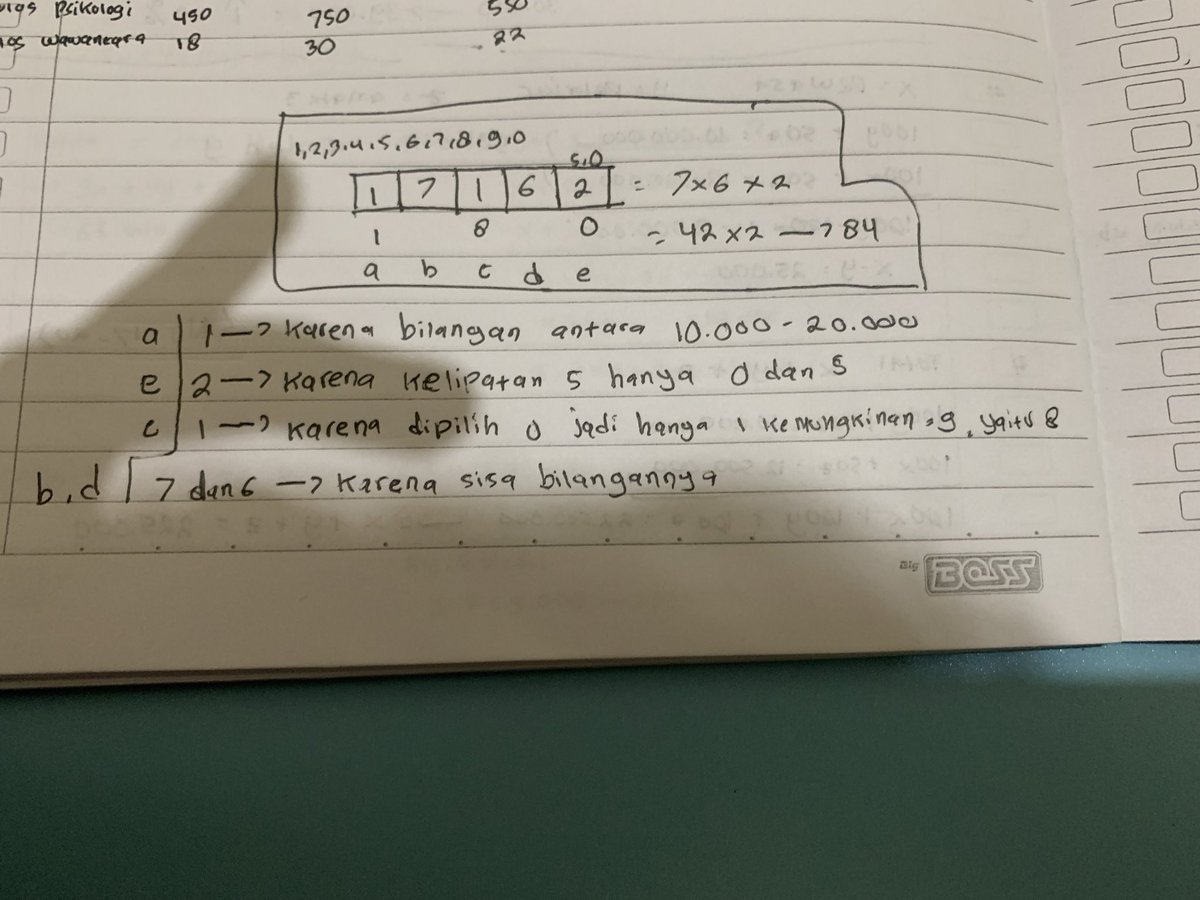 Psikologi 450 750 550
wawancara 18 30 22
1,2,3,4,5,6,7,8,9,0
5,0
1 7 1 6 2 = 7x6x2
1 8 0 = 42x2 —> 84
a b c d e
a 1 —> Karena bilangan antara 10.000 - 20.000
e 2 —> Karena kelipatan 5 hanya 0 dan 5
c 1 —> Karena dipilih 0 jadi hanya 1 kemungkinan =9, yaitu 8
b,d 7 dan 6 —> Karena sisa bilangannya
Big BOSS